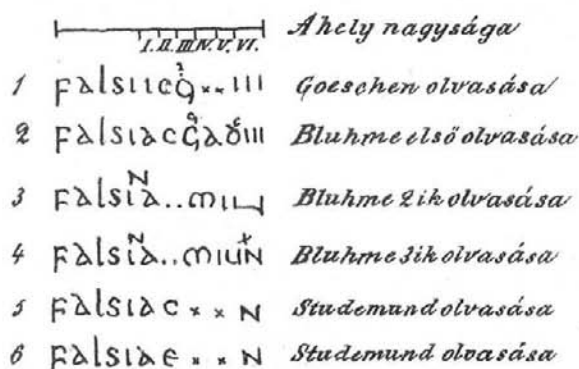 A hely nagysága
I. II. III. IV. V. VI.
1 FalsiicG··III Goeschen olvasása
2 FalsiacGadIII Bluhme első olvasása
3 Falsia..miu Bluhme 2ik olvasása
4 Falsia..miuN Bluhme 3ik olvasása
5 Falsiac××N Studemund olvasása
6 Falsiae××N Studemund olvasása